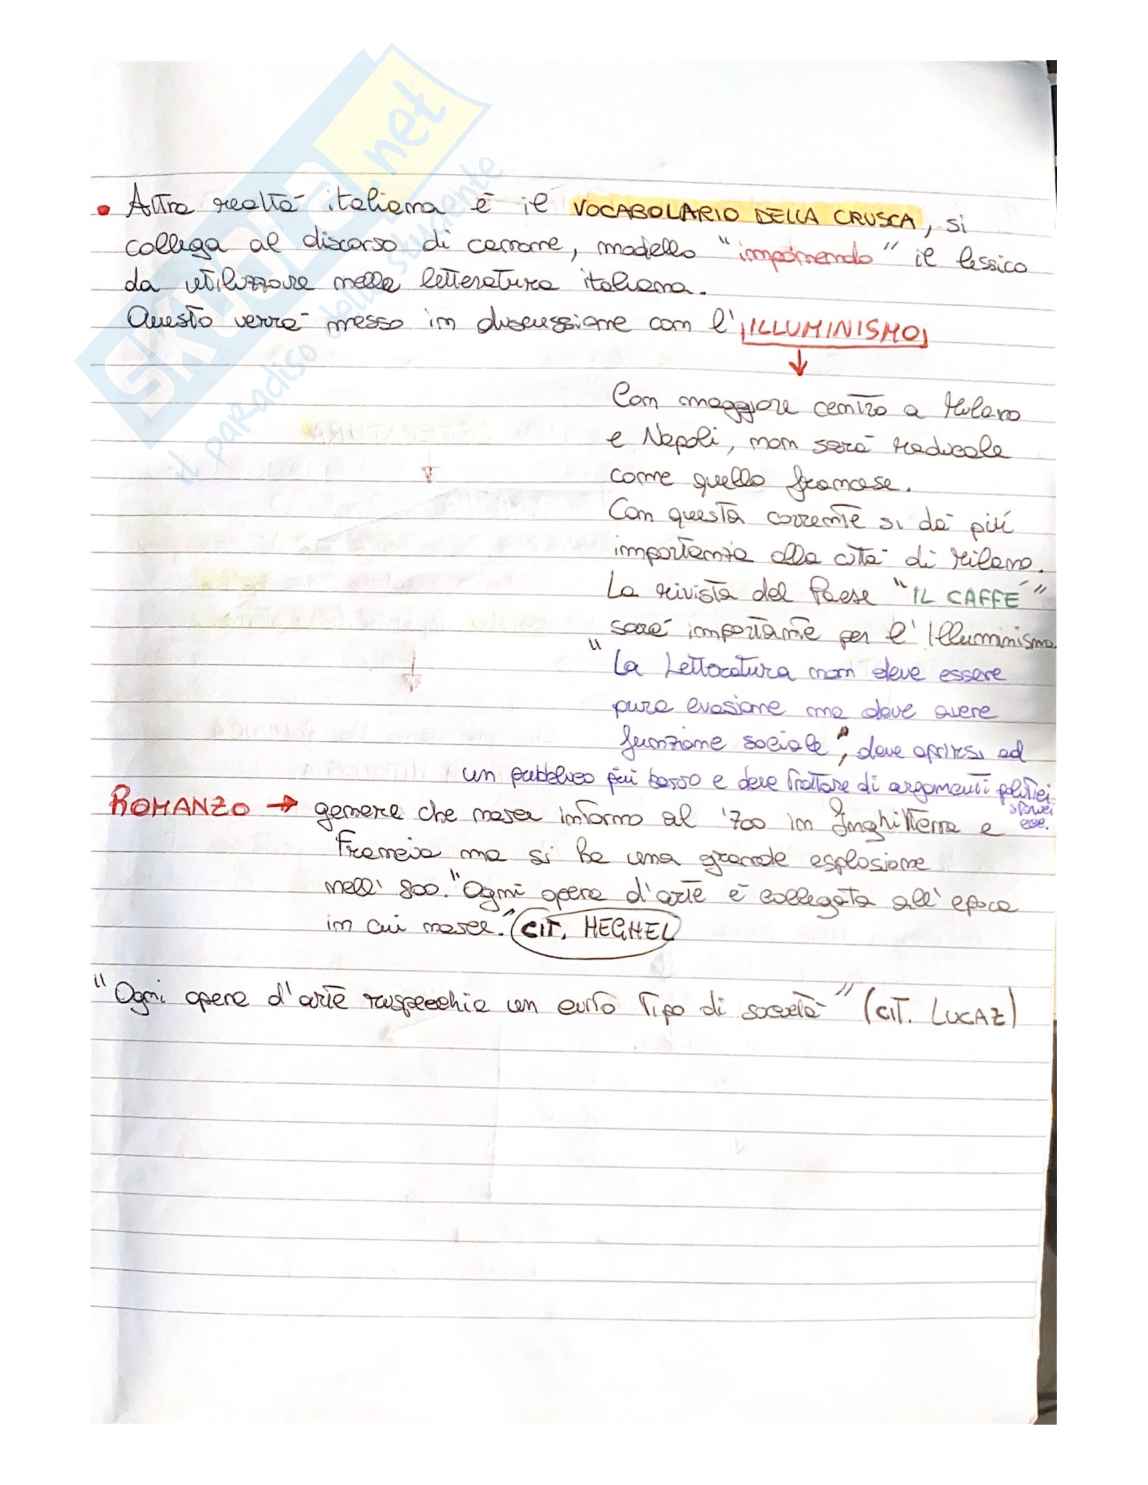 • Altra realtà italiana è il VOCABOLARIO DELLA CRUSCA, si
collega al discorso di canone, modello "imponendo" il lessico
da utilizzare nella letteratura italiana.
Questo verrà messo in discussione con l'ILLUMINISMO
↓
Con maggiore centro a Milano
e Napoli, non sarà radicale
come quello francese.
Con questa corrente si dà più
importanza alla città di Milano.
La rivista del Paese "IL CAFFÈ"
sarà importante per l'Illuminismo
"La Letteratura non deve essere
pura evasione ma deve avere
funzione sociale", deve aprirsi ad
un pubblico più basso e deve trattare di argomenti politici
ROMANZO → genere che nasce intorno al '700 in Inghilterra e
Francia ma si ha una grande esplosione
nell' 800. "Ogni opera d'arte è collegata all'epoca
in cui nasce." CIT. HEGHEL
"Ogni opera d'arte rispecchia un certo tipo di società" (CIT. LUCAZ)
SKUOLA.net
il paradiso dello studente